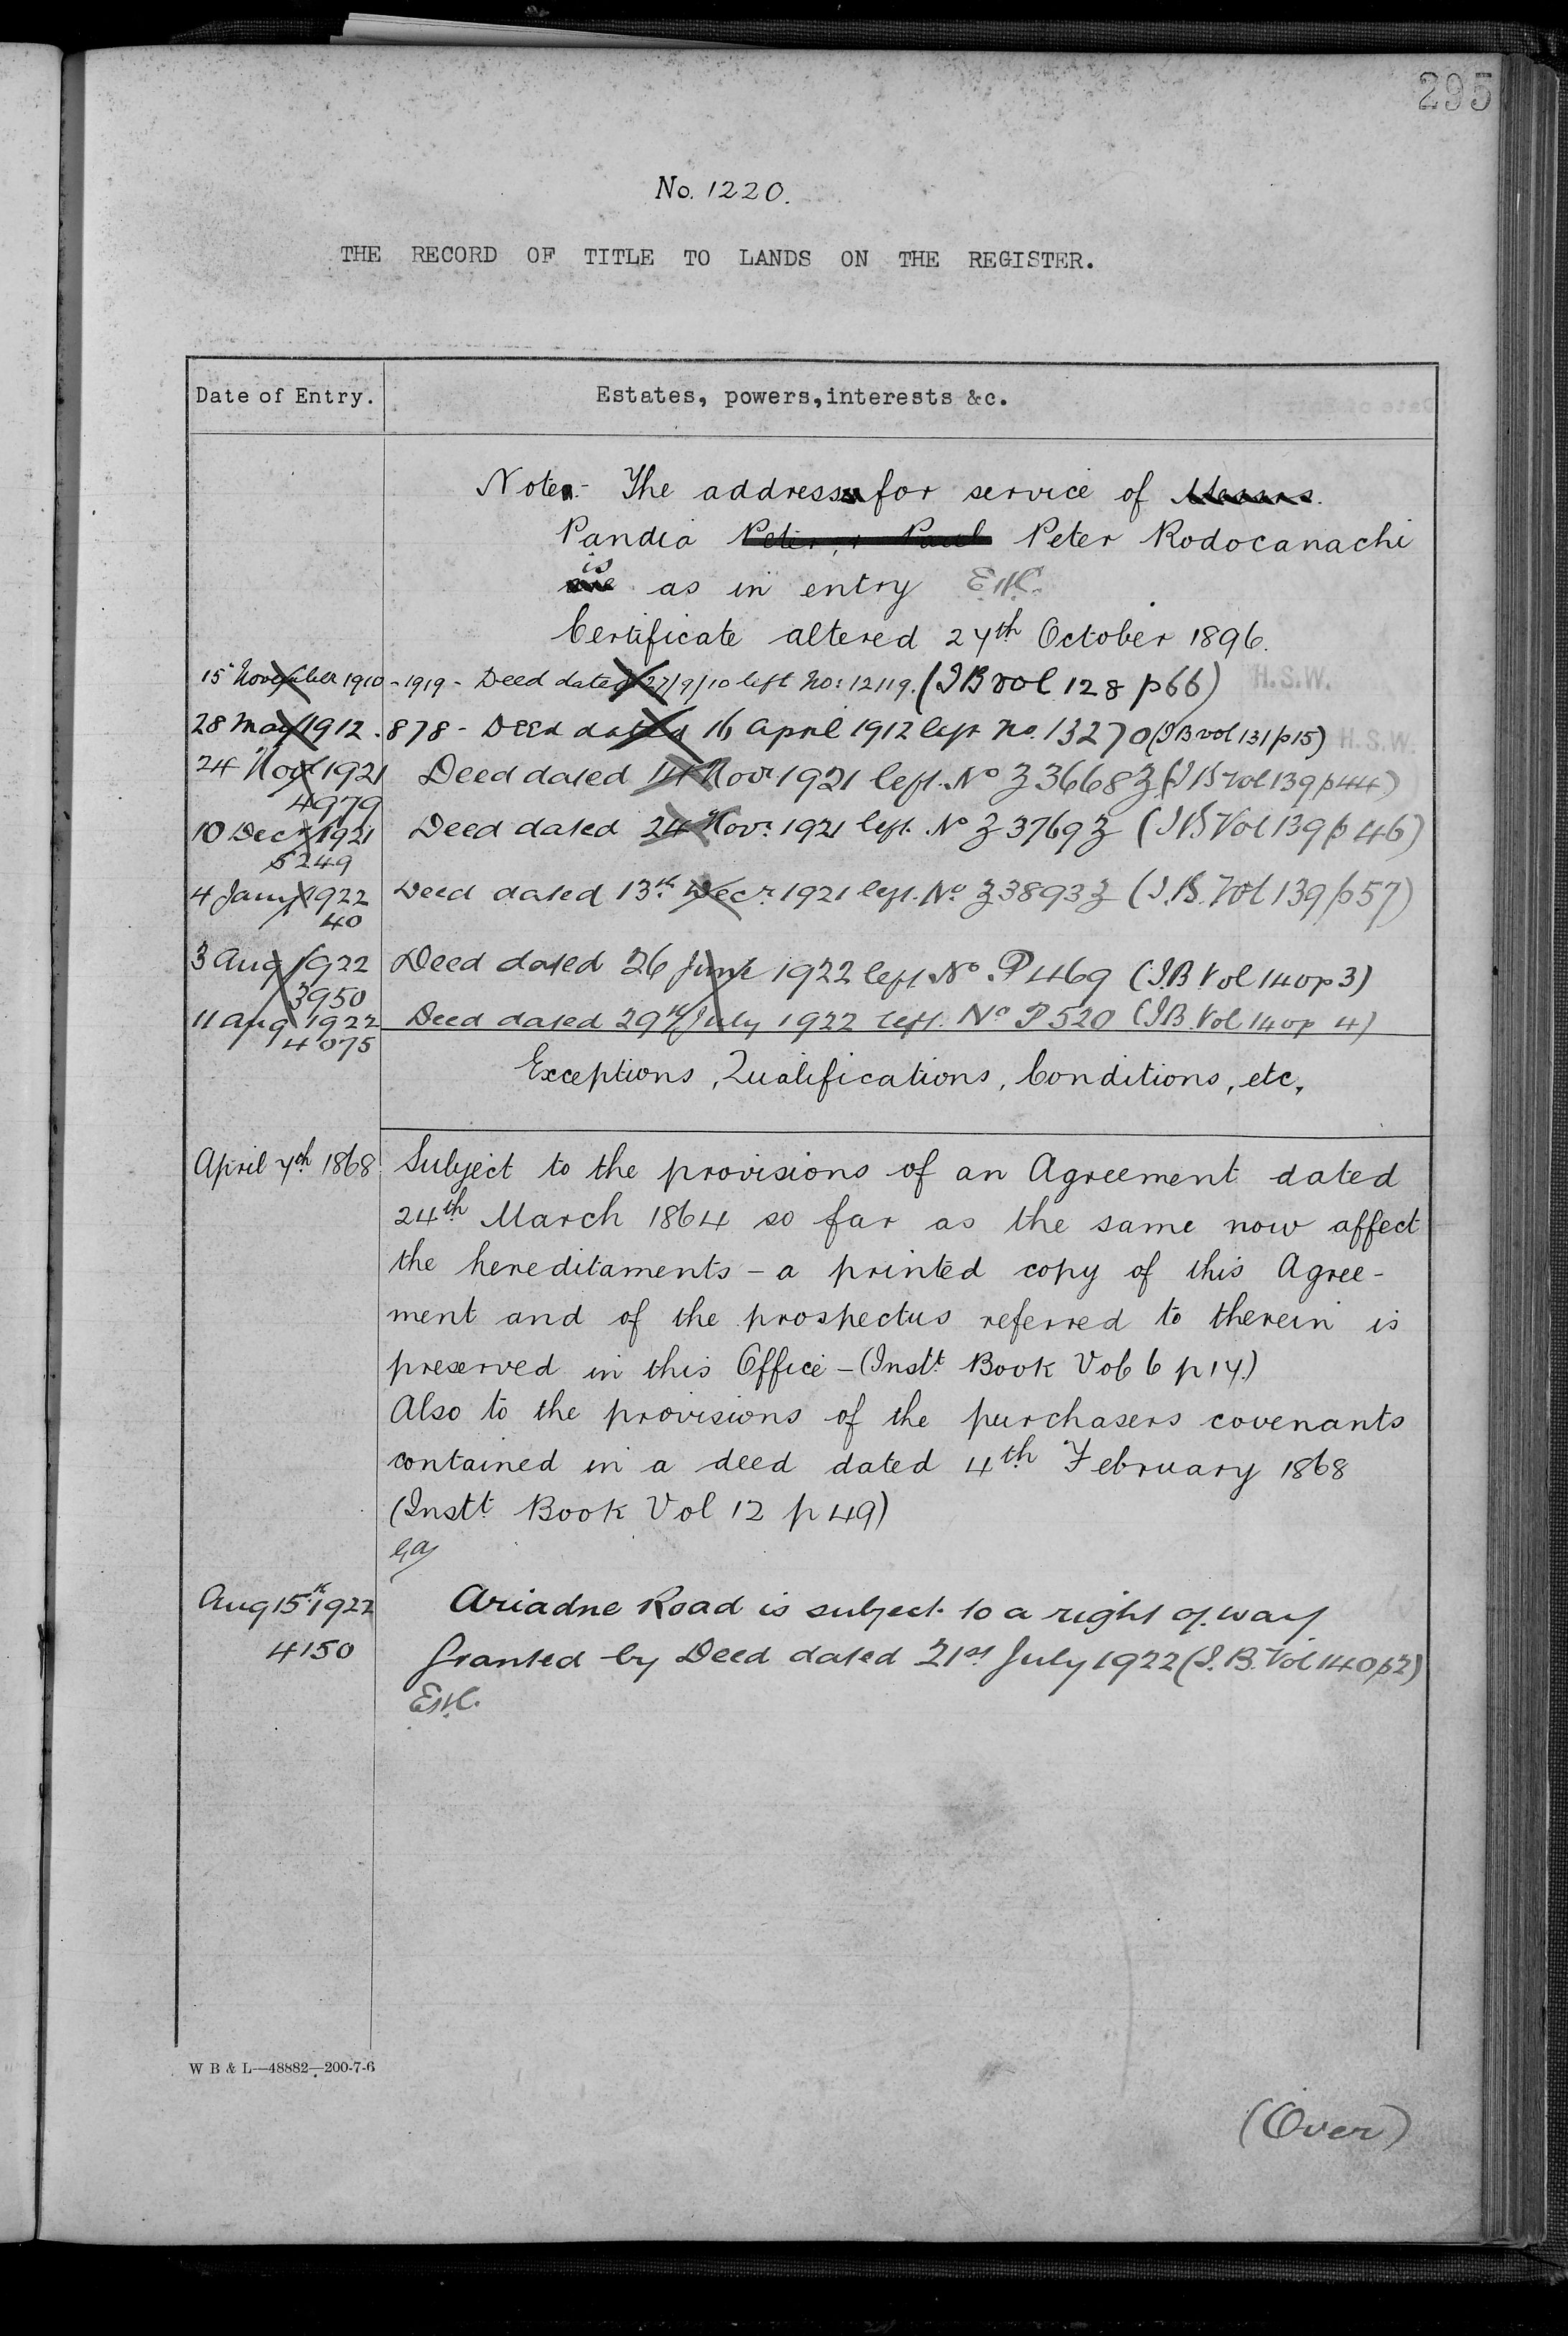 295
No. 1220.
THE RECORD OF TITLE TO LANDS ON THE REGISTER.
Date of Entry. Estates, powers, interests &c.
Note:- The address for service of Messrs.
Pandia Peter & Paul Peter Rodocanachi
is
are as in entry E.H.C.
Certificate altered 27th October 1896.
15 November 1910 - 1919 - Deed dated 27/9/10 left No: 12119. (I B vol 128 p 66) H.S.W.
28 May 1912. 878 - Deed dated 16 April 1912 left No. 13270 (I B vol 131 p 15) H.S.W.
24 Novr 1921 Deed dated 14 Novr 1921 left No Z 3668 Z (I B Vol 139 p 44)
4979
10 Decr 1921 Deed dated 24 Novr. 1921 left No Z 3769 Z (I B Vol 139 p 46)
5249
4 Jany 1922 Deed dated 13th Decr. 1921 left No Z 3893 Z (I.B. Vol 139 p 57)
40
3 Aug 1922 Deed dated 26 June 1922 left No P 469 (I.B Vol 140 p 3)
3950
11 Aug 1922 Deed dated 29th July 1922 left No P 520 (I B. Vol 140 p 4)
4075
Exceptions, Qualifications, Conditions, etc.
April 7th 1868 Subject to the provisions of an Agreement dated
24th March 1864 so far as the same now affect
the hereditaments - a printed copy of this Agree-
ment and of the prospectus referred to therein is
preserved in this Office - (Instt. Book Vol 6 p 17.)
Also to the provisions of the purchasers covenants
contained in a deed dated 4th February 1868
(Instt. Book Vol 12 p 49)
Aug 15th 1922 Ariadne Road is subject to a right of way
4150 granted by Deed dated 21st July 1922 (I. B. Vol 140 p 2)
E.H.C.
W B & L—48882—200-7-6
(Over)